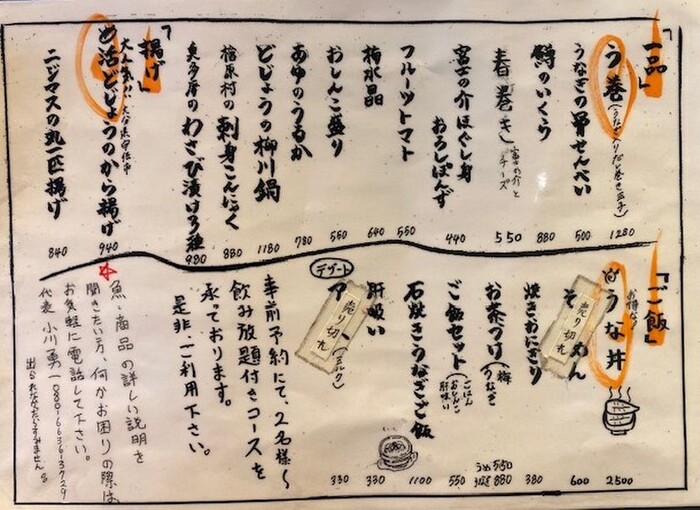 「一品」
う巻(うなぎ入りだし巻き玉子) 1280
うなぎの骨せんべい 500
鱒のいくら 880
春巻き 富士の介とチーズ 550
富士の介ほぐし身おろしぽんず 440
フルーツトマト 550
梅水晶 640
おしんこ盛り 550
あゆのうるか 780
どじょうの柳川鍋 1180
檜原村の刺身こんにゃく 880
奥多摩のわさび漬け3種 980
「揚げ」
活どじょうのから揚げ 940
ニジマスの丸一匹揚げ 840
「ご飯」
お得な!
うな丼 2500
そ めん 600
売り切れ
焼きおにぎり 380
お茶づけ 梅 うなぎ うめ550 うなぎ880
ご飯セット(ごはん おしんこ 肝吸い) 550
石焼きうなぎご飯 1100
肝吸い 330
デザート
ア (ミルク) 330
売り切れ
事前予約にて、2名様〜
飲み放題付きコースを
承っております。
是非ご利用下さい。
☆魚・商品の詳しい説明を
聞きたい方、何かお困りの際は
お気軽に電話して下さい。
代表 小川勇一 080-6636-3729
出られなかったらすみません